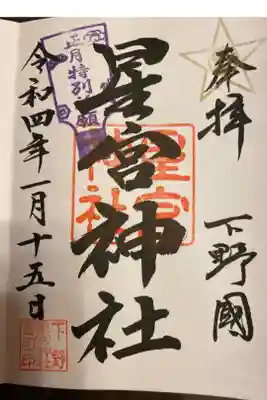 奉拝
下野國
星宮神社
星宮神社
正月特別祈願
令和四年一月十五日